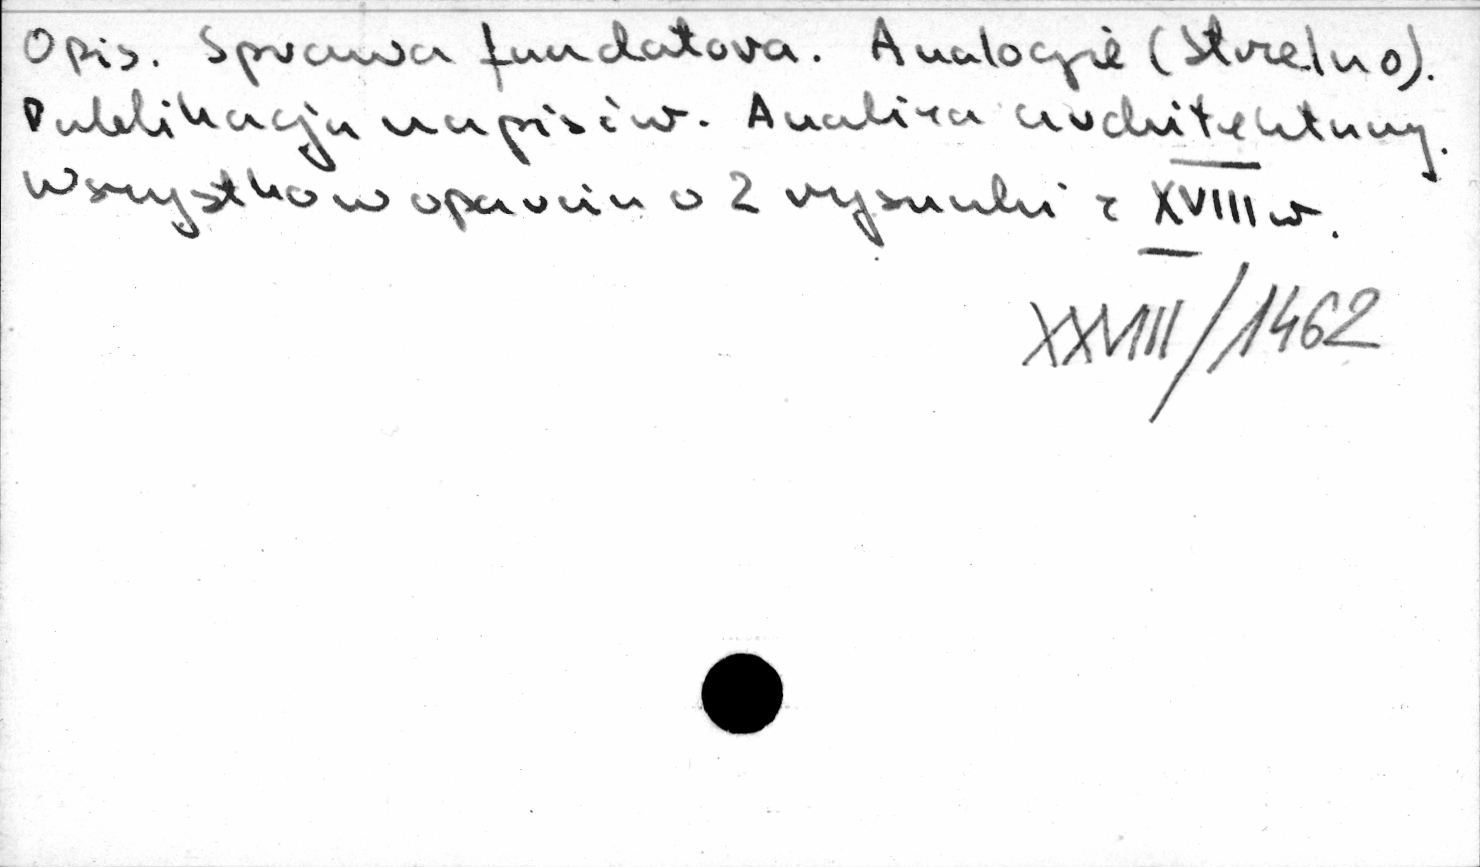 Opis. Sprawa fundatora. Analogie (Strzelno).
Publikacja napisów. Analiza architektury.
Wszystko w oparciu o 2 rysunki z XVIII w.
XXVIII/1462